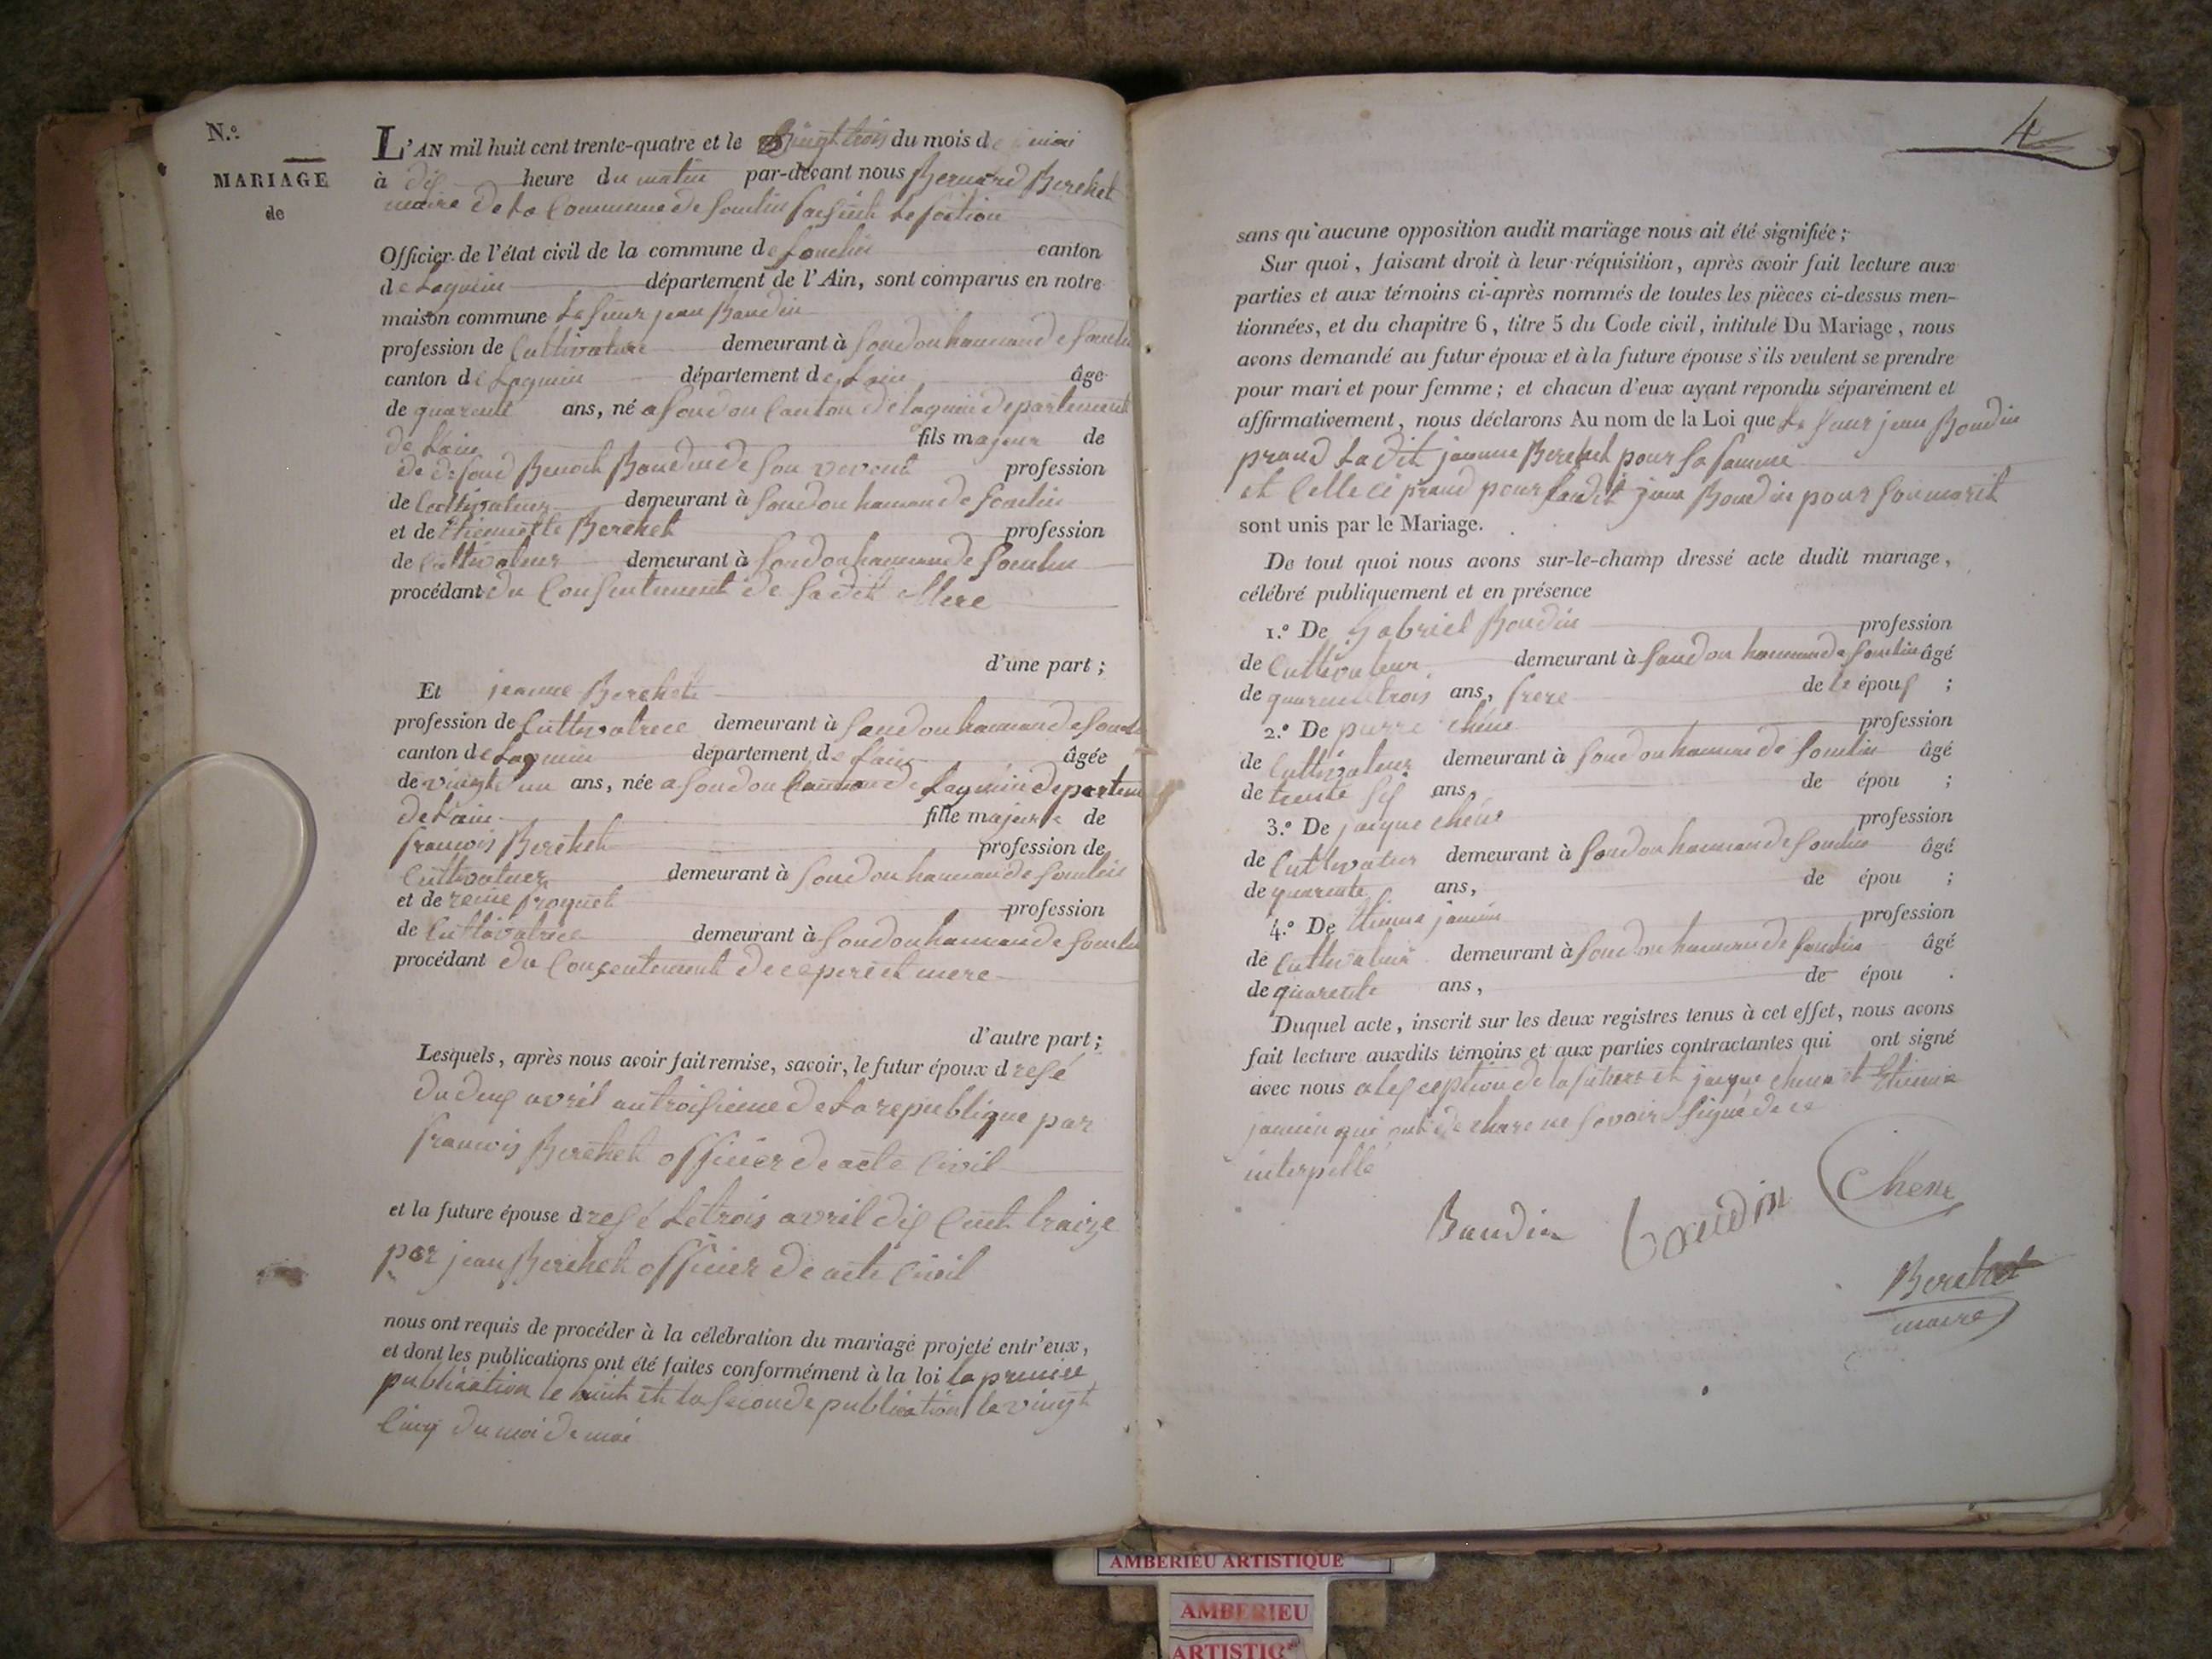 N.º
MARIAGE
de
L'AN mil huit cent trente-quatre et le vingt trois du mois de mai
à dix heure du matin par-devant nous Bernard Berchet
maire de la Commune de Souclin
Officier de l'état civil de la commune de Souclin canton
de Lagnieu département de l'Ain, sont comparus en notre
maison commune Le sieur jean Baudin
profession de Cultivature demeurant à Soudon hamand e Souclin
canton de Lagnieu département de Lain âgé
de quarente ans, né a Soudon Canton de lagnieu departement
de Lain fils majeur de
de defond Benoit Baudin de son vivent profession
de Coltivateur demeurant à Soudon haman de Souclin
et de Etiennette Berchet profession
de Cultivateur demeurant à Soudon haman de Souclin
procédant du Consentement de sa dit Mere
d'une part ;
Et jeanne Berchet
profession de Cultivatrece demeurant à Soudon haman de Souclin
canton de Lagnieu département de Lain âgée
de vingt un ans, née a Soudon Canton de Lagnieu departem
de Lain fille majeure de
francois Berchet profession de
Cultivateur demeurant à Soudon haman de Souclin
et de reine profession
de Cultivatrece demeurant à Soudon haman de Souclin
procédant du Consentement de ce pere et mere
d'autre part ;
Lesquels, après nous avoir fait remise, savoir, le futur époux d resé
du deux avril an troisieme de La republique par
francois Berchet officier de acte Civil
et la future épouse d resé Le trois avril dix Cent traize
par jean Berchet officier de acte Civil
nous ont requis de procéder à la célébration du mariage projeté entr'eux,
et dont les publications ont été faites conformément à la loi la premiee
publication le huit et la seconde publication le vingt
Cinq du moi de mai
4
sans qu'aucune opposition audit mariage nous ait été signifiée ;
Sur quoi, faisant droit à leur réquisition, après avoir fait lecture aux
parties et aux témoins ci-après nommés de toutes les pièces ci-dessus men-
tionnées, et du chapitre 6, titre 5 du Code civil, intitulé Du Mariage, nous
avons demandé au futur époux et à la future épouse s'ils veulent se prendre
pour mari et pour femme ; et chacun d'eux ayant répondu séparément et
affirmativement, nous déclarons Au nom de la Loi que Le sieur jean Boudin
prand La dit jeanne Berchet pour sa famme
et Celle ci prand pour jean Boudin pour son marit
sont unis par le Mariage.
De tout quoi nous avons sur-le-champ dressé acte dudit mariage,
célébré publiquement et en présence
1.º De Gabriel Boudin profession
de Cultivateur demeurant à Soudon haman de Souclin âgé
de quarente trois ans, frere de le époux ;
2.º De pierre Chene profession
de Cultivateur demeurant à Soudon haman de Souclin âgé
de trente six ans, de épou ;
3.º De jacque chene profession
de Cultivateur demeurant à Soudon haman de Souclin âgé
de quarente ans, de épou ;
4.º De Etienne janin profession
de Cultivateur demeurant à Soudon haman de Souclin âgé
de quarente ans, de épou .
Duquel acte, inscrit sur les deux registres tenus à cet effet, nous avons
fait lecture auxdits témoins et aux parties contractantes qui ont signé
avec nous a lexception de la future et jacque chene et Etienne
janin qui ont de clare ne savoir signé de ce
interpellé
Baudin baudin Chene
Berchet
maire
AMBERIEU ARTISTIQUE
AMBERIEU
ARTISTIQ